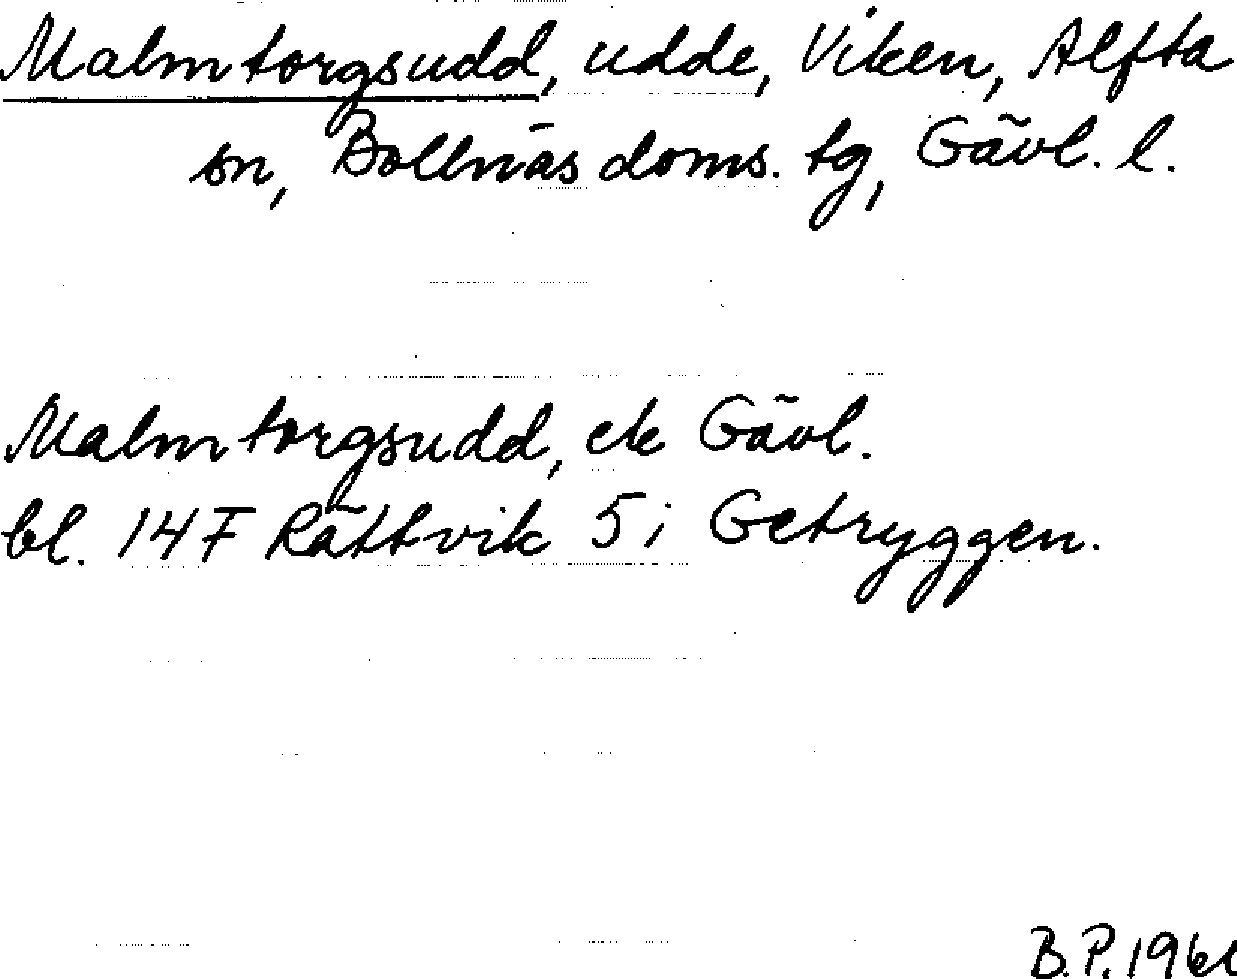 Malmtorgsudd, udde, Viken, Alfta
sn, Bollnäs doms. tg, Gävl. l.
Malmtorgsudd, ek Gävl.
bl. 14 F Rättvik 5 i Getryggen.
B.P.